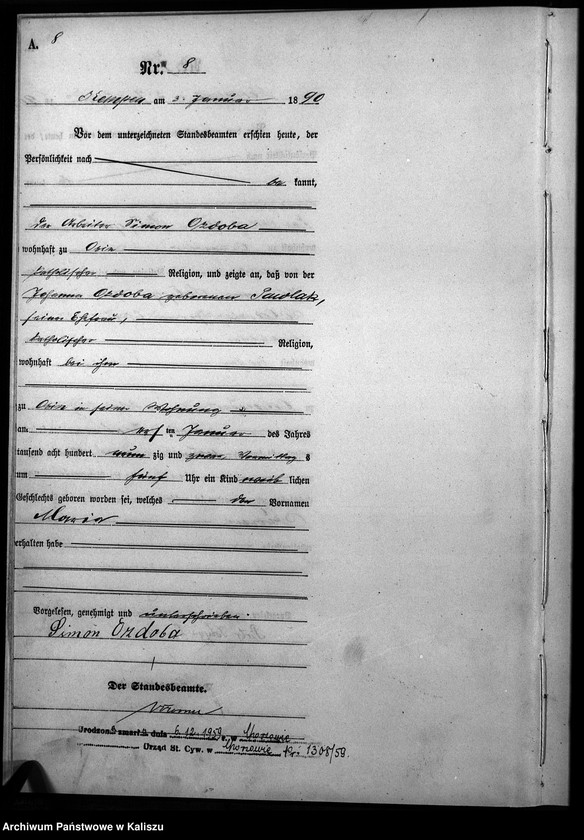 A. 8
Nr. 8
am 3. Januar 1890
Vor dem unterzeichneten Standesbeamten erschien heute, der
Persönlichkeit nach
be kannt,
der Arbeiter Simon Ozdoba
wohnhaft zu
katholischer Religion, und zeigte an, daß von der
Johanna Ozdoba geborenen Smolak,
seiner Ehefrau,
katholischer Religion,
wohnhaft bei ihm
zu in seiner Wohnung
am ten Januar des Jahres
tausend acht hundert neun zig und Vormittag s
um fünf Uhr ein Kind weib lichen
Geschlechts geboren worden sei, welches den Vornamen
Maria
erhalten habe
Vorgelesen, genehmigt und unterschrieben.
Simon Ozdoba
Der Standesbeamte.
zmarł dnia 6.12.1959 r. w
Urząd St. Cyw. w Nr. 1308/59.
Archiwum Państwowe w Kaliszu